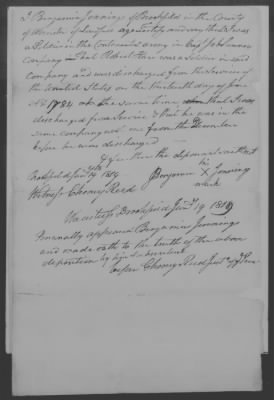 I Benjamin Jennings of Brookfield in the County
of Worcester of lawful age testify and say that I was
a Soldier in the Continental army in Capt
Company that Robert was a Soldier in said
Company and was discharged from the Service of
the United States on the Nineteenth day of June
AD 1784 at the same time that I was
discharged from Service & that he was in the
same company with me from the December
before he was discharged
further the deponent saith not
his
Brookfield Jany 19th 1819 Benjamin X Jennings
mark
Witness Cheney Reed
Worcester ss Brookfield Jany 19 1819
Personally appeared Benjamin Jennings
and made oath to the truth of the above
deposition by him subscribed
before Cheney Reed Just of Peace